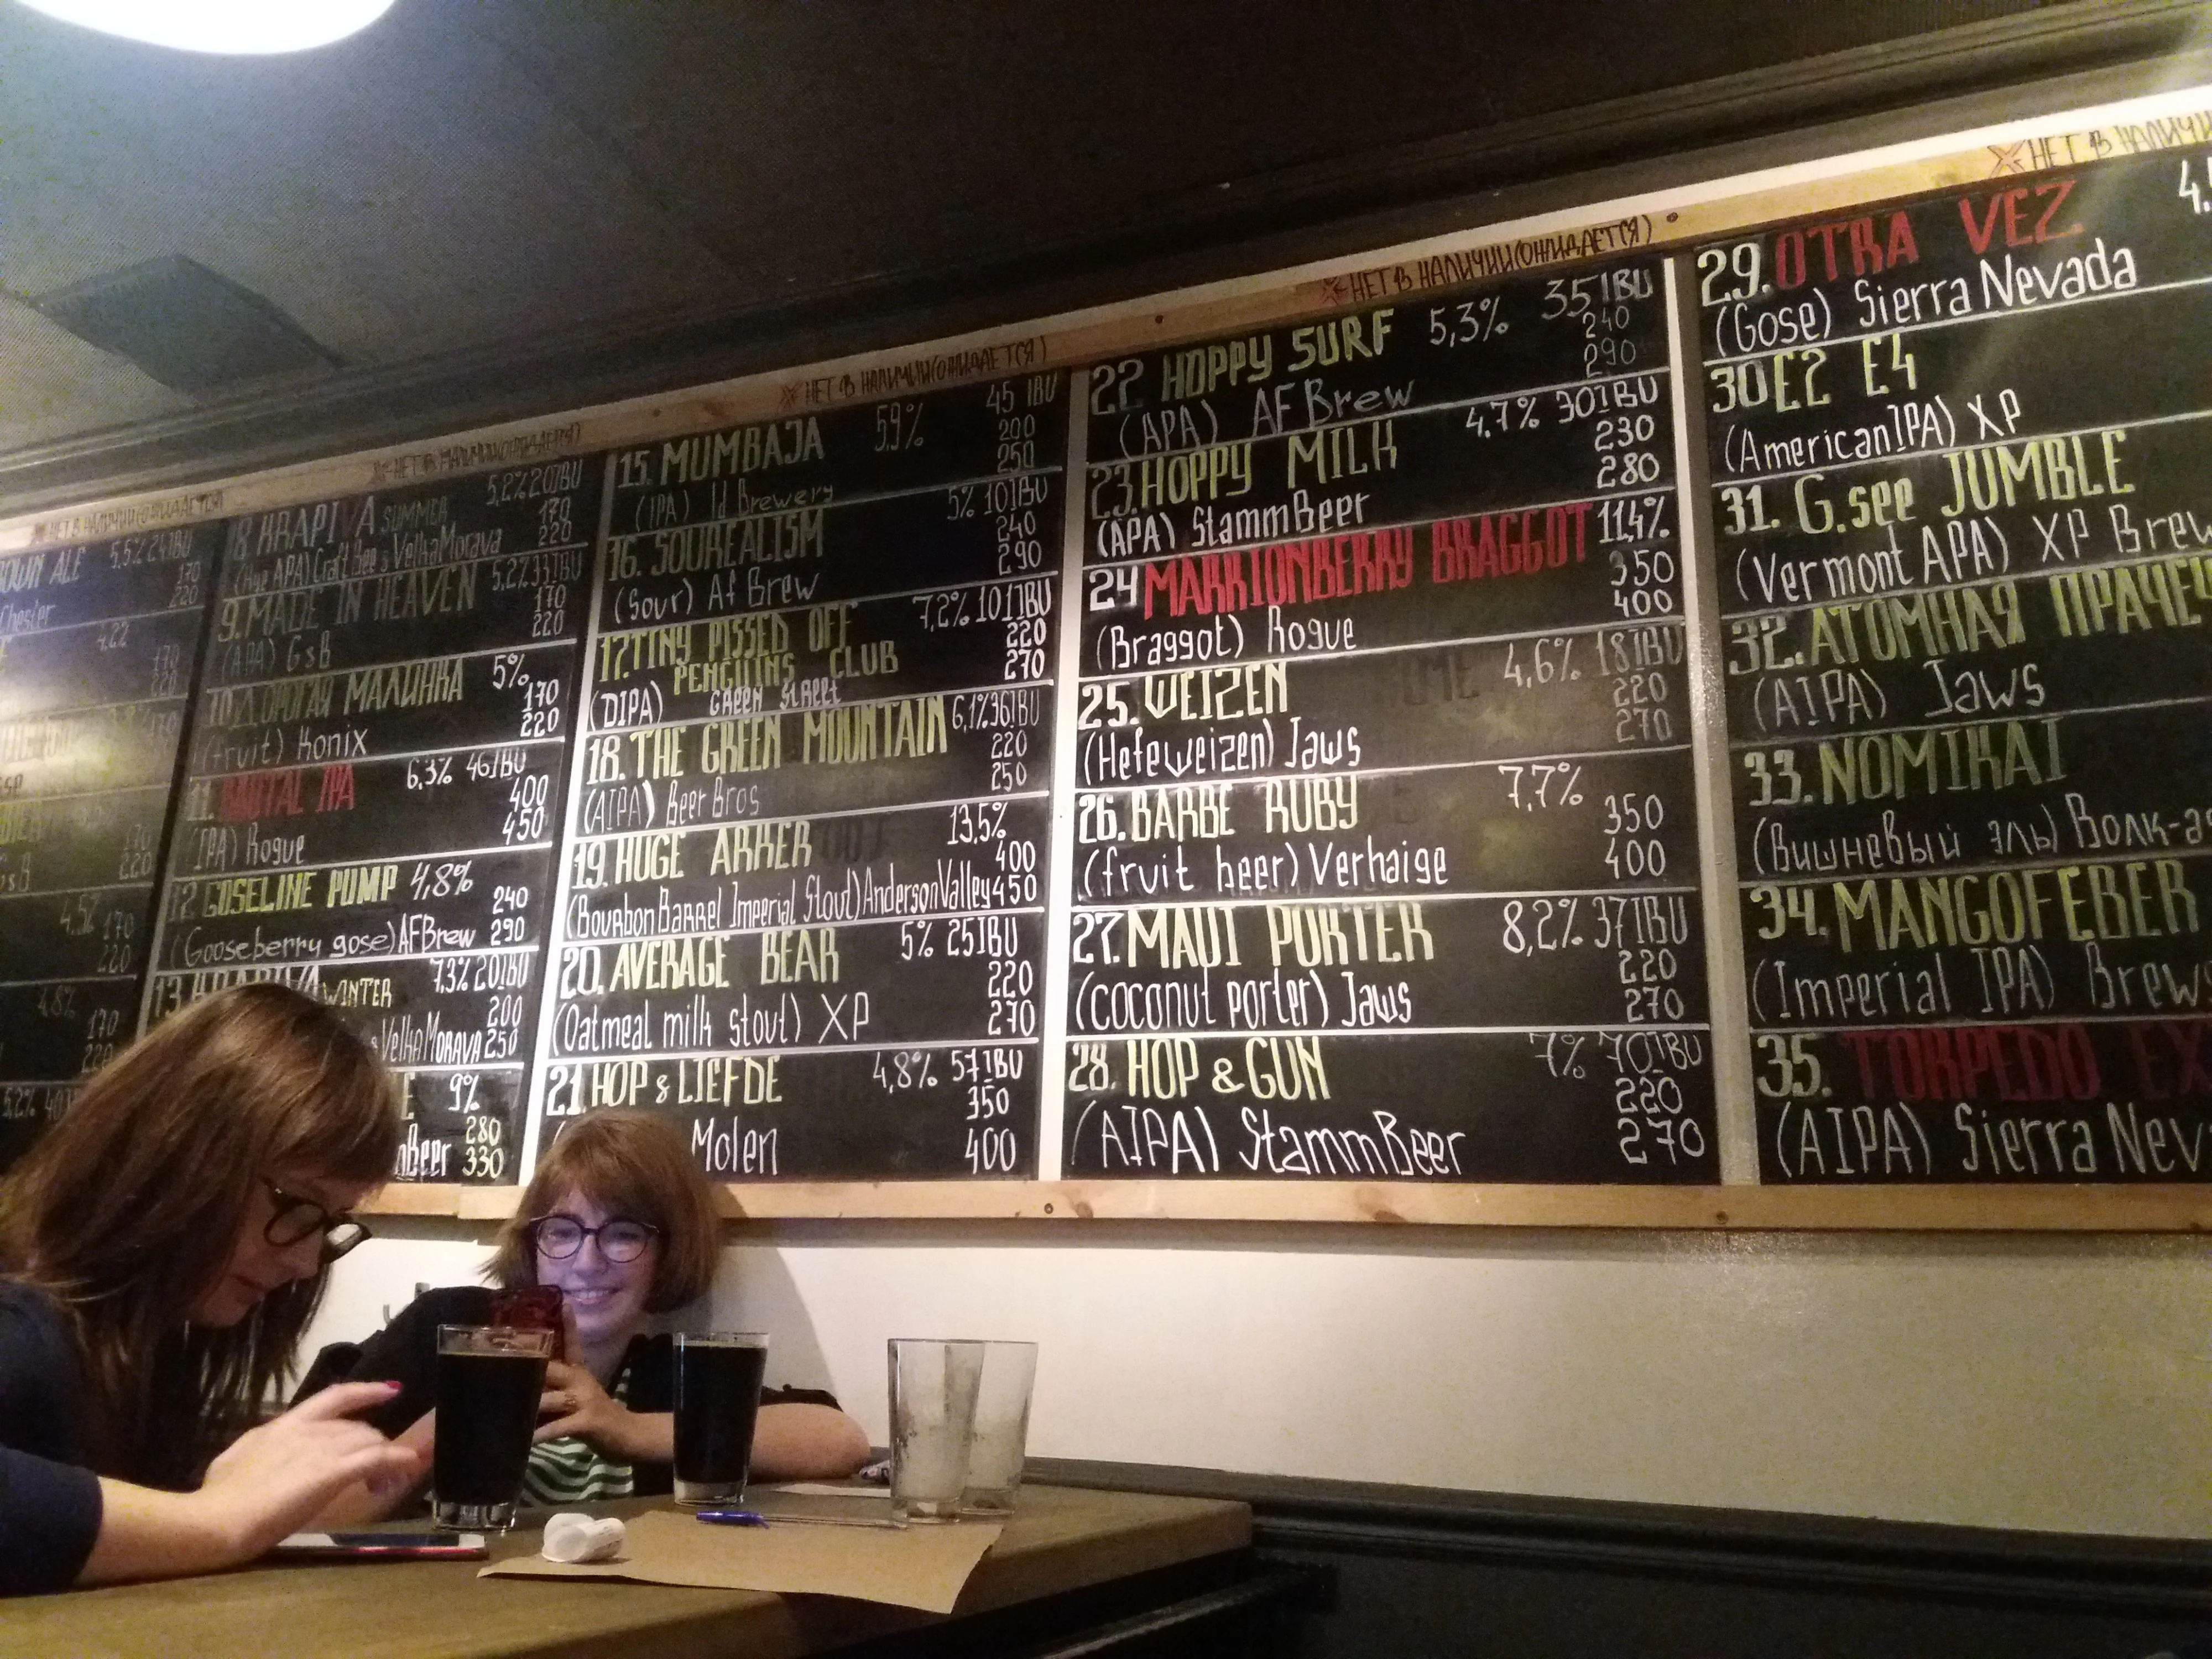 НЕТ В НАЛИЧИИ (ОЖИДАЕТСЯ)
OWN ALE 5,5% 24IBU
170
Chester 220
4.22
170
220
170
220
4.5%
170
220
4,8%
170
5,2%
НЕТ В НАЛИЧИИ (ОЖИДАЕТСЯ)
8. KRAPIVA SUMMER 5,2% 20IBU
170
(Rye APA) Craft Bee & Velka Morava 220
9. MADE IN HEAVEN 5,2% 33IBU
170
(APA) GsB 220
10. ДОРОГАЯ МАЛИНКА 5%
170
(fruit) Konix 220
11. BRUTAL IPA 6,3% 46IBU
400
(IPA) Rogue 450
12. GOSELINE PUMP 4,8%
240
(Gooseberry gose) AF Brew 290
13. KRAPIVA WINTER 7.3% 20IBU
200
& Velka MORAVA 250
E 9%
280
Beer 330
НЕТ В НАЛИЧИИ (ОЖИДАЕТСЯ)
15. MUMBAJA 5.9% 45 IBU
200
(IPA) Id Brewery 250
16. SOUREALISM 5% 10IBU
240
(Sour) Af Brew 290
17. TINY PISSED OFF 7,2% 101IBU
PENGUINS CLUB 220
(DIPA) GREEN STREET 270
18. THE GREEN MOUNTAIN 6,1% 36IBU
220
(AIPA) Beer Bros 250
19. HUGE ARKER 13,5%
400
(Bourbon Barrel Imperial Stout) Anderson Valley 450
20. AVERAGE BEAR 5% 25IBU
220
(Oatmeal milk stout) XP 270
21. HOP & LIEFDE 4,8% 57IBU
350
Molen 400
НЕТ В НАЛИЧИИ (ОЖИДАЕТСЯ)
22. HOPPY SURF 5,3% 35IBU
240
(APA) AF Brew 290
23. HOPPY MILK 4.7% 30IBU
230
(APA) StammBeer 280
24 MARRIONBERRY BRAGGOT 11,4%
350
(Braggot) Rogue 400
25. WEIZEN 4,6% 18IBU
220
(Hefeweizen) Jaws 270
26. BARBE RUBY 7,7%
350
(fruit beer) Verhaige 400
27. MAUI PORTER 8,2% 37IBU
220
(coconut porter) Jaws 270
28. HOP & GUN 7% 70IBU
220
(AIPA) StammBeer 270
НЕТ В НАЛИЧИ
29. OTRA VEZ 4.
(Gose) Sierra Nevada
30 E2 E4
(American IPA) XP
31. G.see JUMBLE
(Vermont APA) XP Brew
32. АТОМНАЯ ПРАЧЕ
(AIPA) Jaws
33. NOMIKAI
(Вишневый эль) Волк-а
34. MANGOFEBER
(Imperial IPA) Brew
35. TORPEDO EX
(AIPA) Sierra Nev